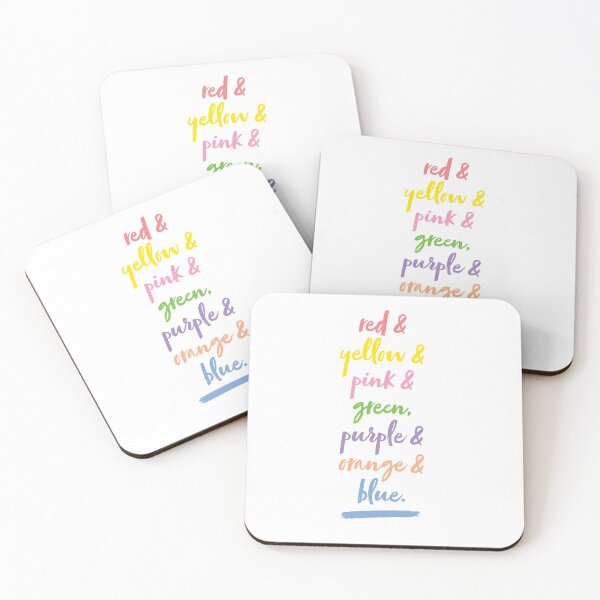 red &
yellow &
pink &
green,
purple &
red &
yellow &
pink &
green,
purple &
orange &
red &
yellow &
pink &
green,
purple &
orange &
blue.
red &
yellow &
pink &
green,
purple &
orange &
blue.